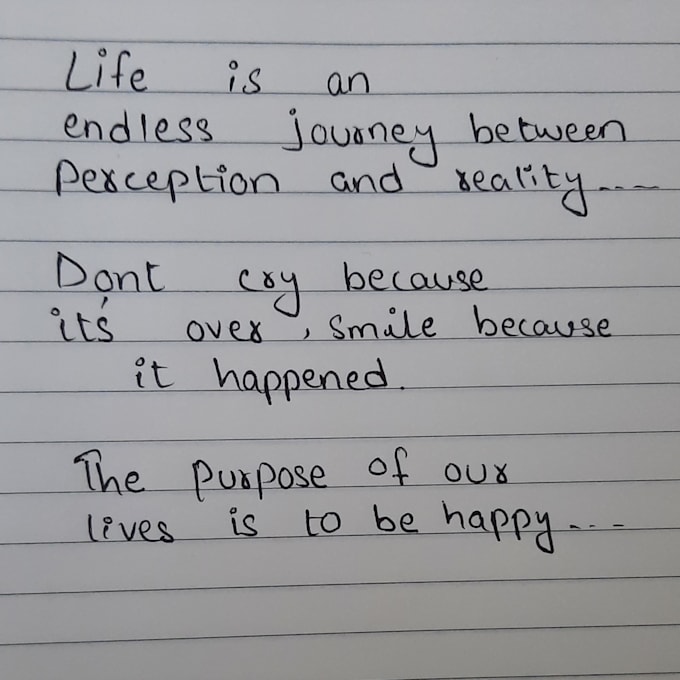 Life is an
endless journey between
Perception and reality----
Dont cry because
it's over, smile because
it happened.
The purpose of our
lives is to be happy---